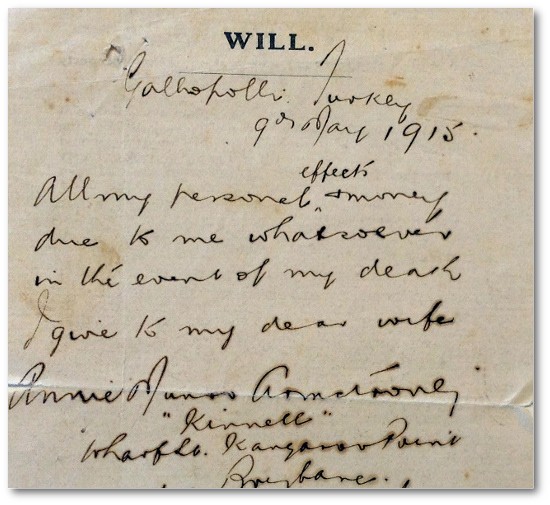 WILL.
Gallopolli. Turkey
9th May 1915.
effects
All my personal ^ & money
due to me whatsoever
in the event of my death
I give to my dear wife
Annie Munro Armstrong
"Kinnell"
Wharf St. Kangaroo Point
Brisbane.